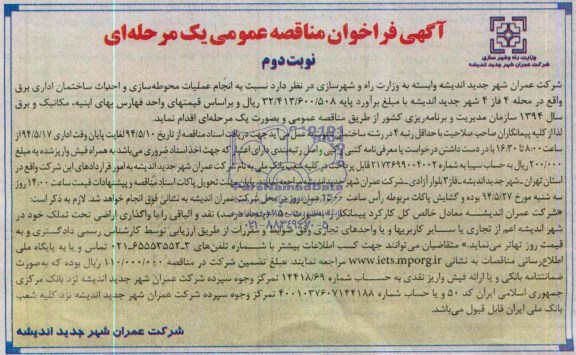 آگهی فراخوان مناقصه عمومی یک مرحله‌ای
نوبت دوم
وزارت راه و شهرسازی
شرکت عمران شهر جدید اندیشه
شرکت عمران شهر جدید اندیشه وابسته به وزارت راه و شهرسازی در نظر دارد نسبت به انجام عملیات محوطه‌سازی و احداث ساختمان اداری برق
واقع در محله ۴ فاز ۴ شهر جدید اندیشه با مبلغ برآورد پایه ۳۲/۴۱۳/۶۰۰/۵۰۸ ریال و براساس قیمتهای واحد فهارس بهای ابنیه، مکانیک و برق
سال ۱۳۹۴ سازمان مدیریت و برنامه‌ریزی کشور از طریق مناقصه عمومی و بصورت یک مرحله‌ای اقدام نماید.
لذا از کلیه پیمانکاران صاحب صلاحیت با حداقل رتبه ۴ در رشته ساختمان جهت دریافت اسناد مناقصه از تاریخ ۹۴/۵/۱۰ لغایت پایان وقت اداری ۹۴/۵/۱۷ از
ساعت ۸:۰۰ تا ۱۶:۳۰ با در دست داشتن درخواست یا معرفی‌نامه کتبی و اصل رتبه‌بندی دارای اعتبار جهت اخذ اسناد ضروری می‌باشد به همراه فیش واریز شده به مبلغ
۲۰۰/۰۰۰ ریال به حساب سیبا به شماره ۲۱۷۳۶۹۹۰۰۴۰۰۳ قابل پرداخت در کلیه شعب بانک ملی به نام شرکت عمران شهر جدید اندیشه به امور قراردادهای این شرکت واقع در
استان تهران - شهر جدید اندیشه - فاز ۳ بلوار آزادی - شرکت عمران شهر جدید اندیشه مراجعه نمایند. پایان مهلت تحویل پاکات اسناد مناقصه و پیشنهادات قیمت ساعت ۱۴:۰۰ روز
سه شنبه مورخ ۹۴/۵/۲۷ بوده و گشایش پاکات مربوطه رأس ساعت همان روز در محل شرکت عمران اندیشه به نشانی فوق انجام خواهد شد. لازم به ذکر است:
«شرکت عمران اندیشه معادل خالص کل کارکرد پیمانکار را به صورت ۷۵٪ (درصد) نقد و الباقی را با واگذاری اراضی تحت تملک خود در
شهر اندیشه اعم از تجاری یا سایر کاربریها و یا واحدهای تجاری وفق ضوابط و مقررات از طریق ارزیابی توسط کارشناس رسمی دادگستری و به
قیمت روز تهاتر می‌نماید.» متقاضیان می‌توانند جهت کسب اطلاعات بیشتر با شماره تلفن‌های ۳-۶۵۵۵۳۵۵۲-۰۲۱ تماس و یا به پایگاه ملی
اطلاع‌رسانی مناقصات به نشانی www.iets.mporg.ir مراجعه نمایند. مبلغ تضمین شرکت در مناقصه ۱/۱۱۰/۰۰۰/۰۰۰ ریال بوده که به‌صورت
ضمانتنامه بانکی و یا ارائه فیش واریز نقدی به حساب شماره ۱۴۴۱۸/۶۹ تمرکز وجوه سپرده شرکت عمران شهر جدید اندیشه نزد بانک مرکزی
جمهوری اسلامی ایران کد ۵۰ و یا حساب شماره ۴۰۰۱۰۳۷۶۰۷۱۴۴۱۸۸ تمرکز وجوه سپرده شرکت عمران شهر جدید اندیشه نزد کلیه شعب
بانک ملی ایران قابل قبول می‌باشد.
شرکت عمران شهر جدید اندیشه